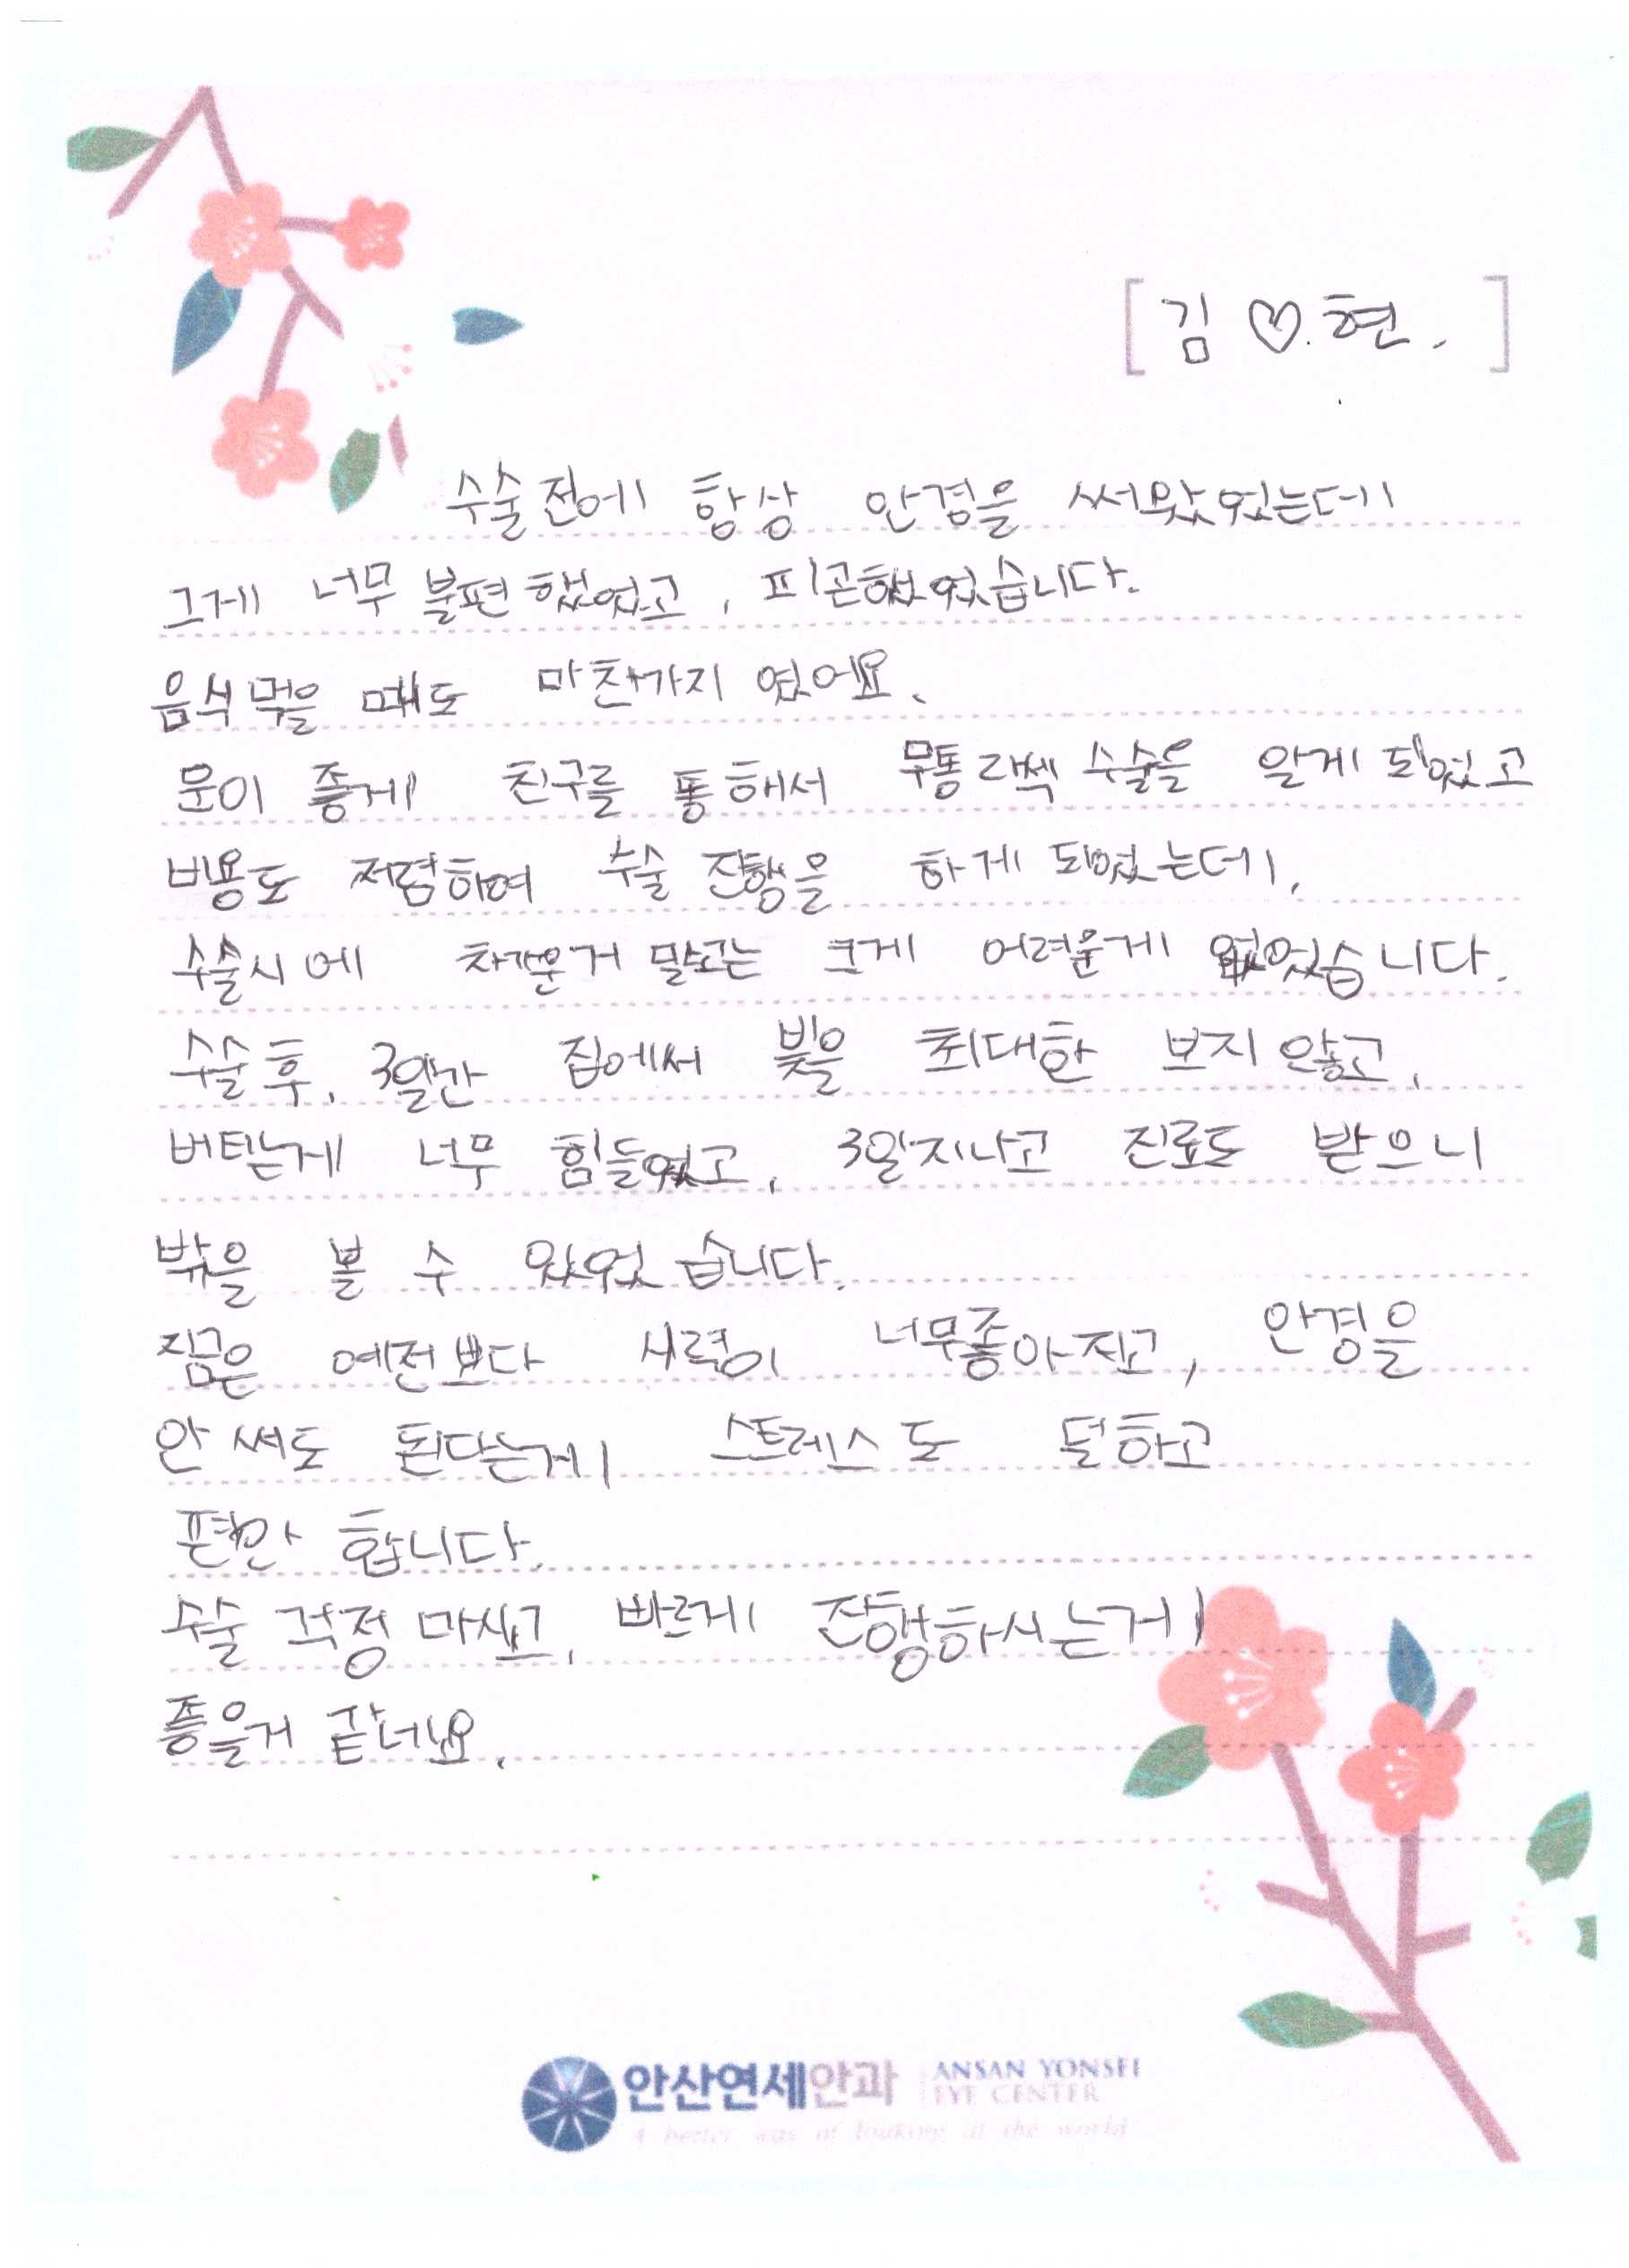 [김 ♡.현.]
수술전에 항상 안경을 써왔었는데
그게 너무 불편했었고, 피곤했었습니다.
음식먹을 때도 마찬가지 였어요.
운이 좋게 친구를 통해서 무통라섹 수술을 알게 되었고
비용도 저렴하여 수술 진행을 하게 되었는데,
수술시에 차가운거 말고는 크게 어려운게 없었습니다.
수술후, 3일간 집에서 빛을 최대한 보지 않고,
버티는게 너무 힘들었고, 3일지나고 진료도 받으니
밖을 볼 수 있었습니다.
지금은 예전보다 시력이 너무좋아지고, 안경을
안써도 된다는게 스트레스도 덜하고
편안 합니다.
수술 걱정 마시고, 빠르게 진행하시는게
좋을거 같네요.
안산연세안과 ANSAN YONSEI
EYE CENTER
A better way of looking at the world